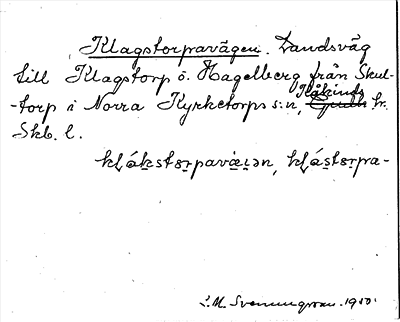 Klagstorpavägen. Landsväg
till Klagstorp o. Hagelberg från Skul-
-torp i Norra Kyrketorps s:n, Kåkinds hr.
Skb. l.
kʟákstɵrpavæ̀ɪən, kʟástɵrpa-
S. M. Svenungsson. 1950.